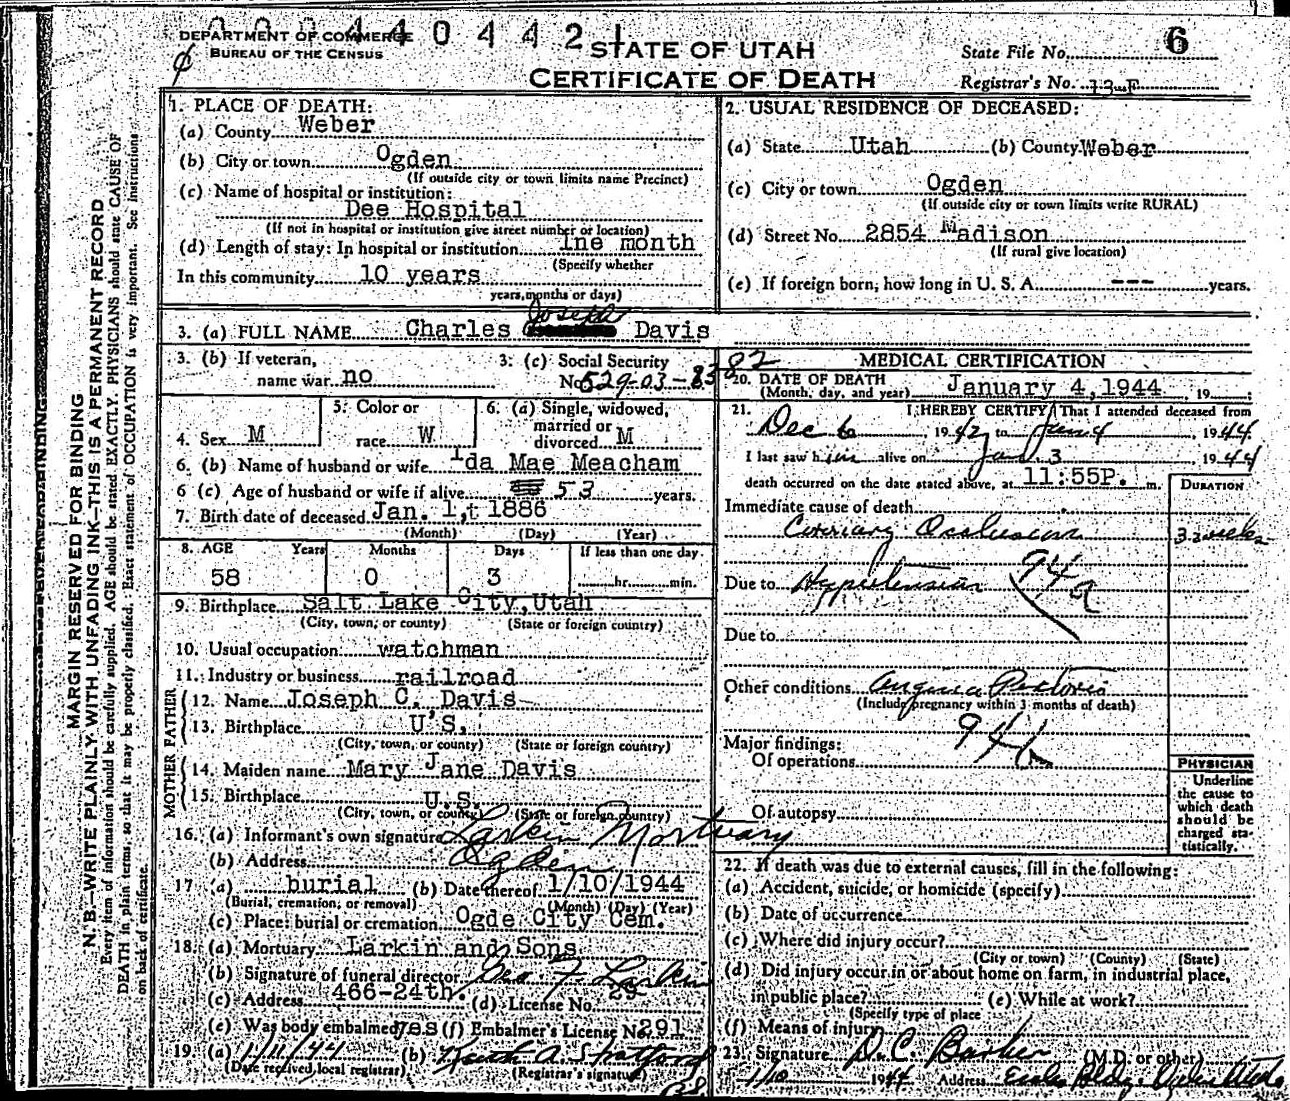 DEPARTMENT OF COMMERCE
BUREAU OF THE CENSUS
440442
STATE OF UTAH
CERTIFICATE OF DEATH
State File No. 6
Registrar's No. 13-F
MARGIN RESERVED FOR BINDING
N. B.—WRITE PLAINLY, WITH UNFADING INK—THIS IS A PERMANENT RECORD
Every item of information should be carefully supplied. AGE should be stated EXACTLY. PHYSICIANS should state CAUSE OF
DEATH in plain terms, so that it may be properly classified. Exact statement of OCCUPATION is very important. See instructions
on back of certificate.
1. PLACE OF DEATH:
(a) County Weber
(b) City or town Ogden
(If outside city or town limits name Precinct)
(c) Name of hospital or institution:
Dee Hospital
(If not in hospital or institution give street number or location)
(d) Length of stay: In hospital or institution 1ne month
(Specify whether
In this community 10 years
years, months or days)
2. USUAL RESIDENCE OF DECEASED:
(a) State Utah (b) County Weber
(c) City or town Ogden
(If outside city or town limits write RURAL)
(d) Street No. 2854 Madison
(If rural give location)
(e) If foreign born, how long in U. S. A. --- years.
3. (a) FULL NAME Charles Joseph Davis
3. (b) If veteran, name war no
3. (c) Social Security No. 529-03-8382
4. Sex M
5. Color or race W
6. (a) Single, widowed, married or divorced M
6. (b) Name of husband or wife Ida Mae Meacham
6 (c) Age of husband or wife if alive 53 years.
7. Birth date of deceased Jan. 1,t 1886
(Month) (Day) (Year)
8. AGE Years Months Days If less than one day
58 0 3 hr. min.
9. Birthplace Salt Lake City, Utah
(City, town, or county) (State or foreign country)
10. Usual occupation watchman
11. Industry or business railroad
FATHER
12. Name Joseph C. Davis
13. Birthplace U'S.
(City, town, or county) (State or foreign country)
MOTHER
14. Maiden name Mary Jane Davis
15. Birthplace U.S.
(City, town, or county) (State or foreign country)
16. (a) Informant's own signature Larkin Mortuary
(b) Address Ogden
17 (a) burial (b) Date thereof 1/10/1944
(Burial, cremation, or removal) (Month) (Day) (Year)
(c) Place: burial or cremation Ogde City Cem.
18. (a) Mortuary Larkin and Sons
(b) Signature of funeral director Geo. F. Larkin
(c) Address 466-24th. (d) License No. 29
(e) Was body embalmed yes (f) Embalmer's License No. 291
19. (a) 1/11/44 (b) Keith A. Stratford
(Date received local registrar) (Registrar's signature)
MEDICAL CERTIFICATION
20. DATE OF DEATH January 4, 1944 19
(Month, day, and year)
21. I HEREBY CERTIFY That I attended deceased from
Dec 6, 1942 to Jan 4, 1944
I last saw him alive on Jan. 3 1944
death occurred on the date stated above, at 11:55P. m.
DURATION
Immediate cause of death
Coronary Occlusion 3 weeks
Due to Hypertension 94a
Due to
Other conditions Angina Pectoris
(Include pregnancy within 3 months of death)
94b
Major findings:
Of operations
Of autopsy
PHYSICIAN
Underline
the cause to
which death
should be
charged sta-
tistically.
22. If death was due to external causes, fill in the following:
(a) Accident, suicide, or homicide (specify)
(b) Date of occurrence
(c) Where did injury occur?
(City or town) (County) (State)
(d) Did injury occur in or about home on farm, in industrial place,
in public place? (e) While at work?
(Specify type of place
(f) Means of injury
23. Signature D.C. Barker (M.D. or other)
1/10 1944 Address Eccles Bldg. Ogden Utah